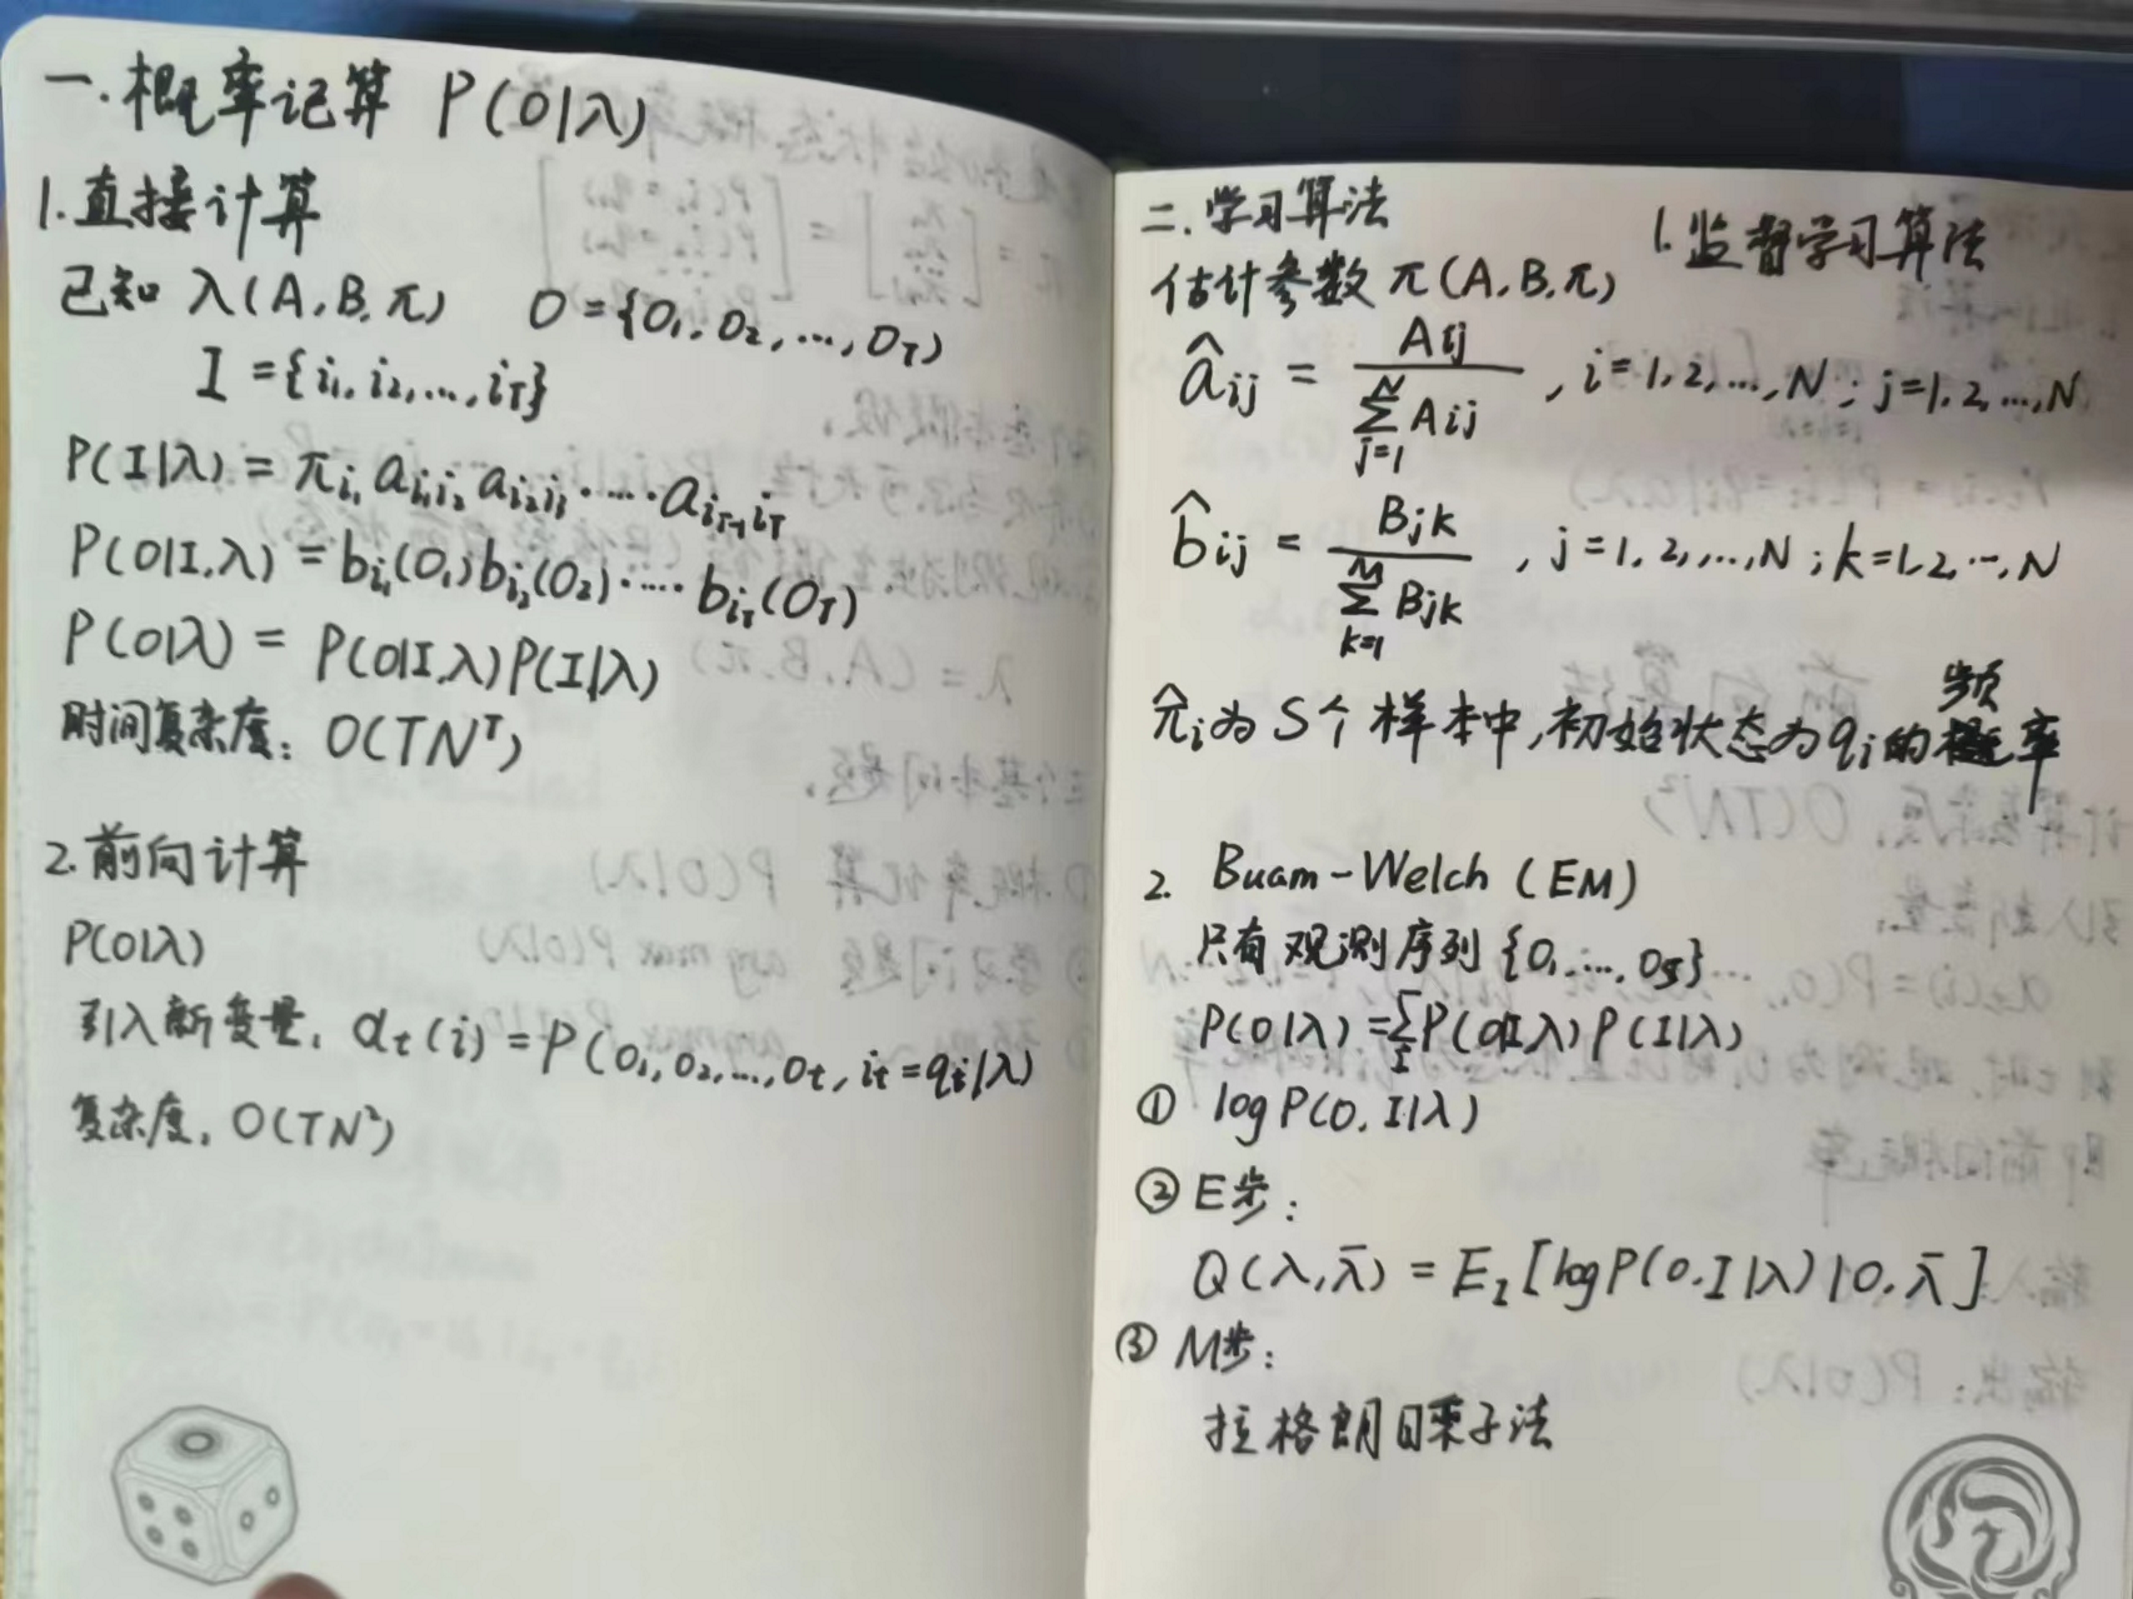 一.概率记算 P(O|λ)
1.直接计算
已知 λ(A,B,π) O={O₁,O₂,...,O_T)
I={i₁,i₂,...,i_T}
P(I|λ)=π_{i₁}a_{i₁i₂}a_{i₂i₃}·...·a_{i_{T-1}i_T}
P(O|I,λ)=b_{i₁}(O₁)b_{i₂}(O₂)·...·b_{i_T}(O_T)
P(O|λ)= P(O|I,λ)P(I|λ)
时间复杂度: O(TN^T)
2.前向计算
P(O|λ)
引入新变量, α_t(i)=P(O₁,O₂,...,O_t,i_t=q_i|λ)
复杂度, O(TN²)
二.学习算法
1.监督学习算法
估计参数 π(A,B,π)
â_{ij} = A_{ij} / \sum_{j=1}^{N} A_{ij} , i=1,2,...,N; j=1,2,...,N
b̂_{ij} = B_{jk} / \sum_{k=1}^{M} B_{jk} , j=1,2,...,N; k=1,2,...,N
π̂_i为S个样本中,初始状态为q_i的频率
2. Buam-Welch (EM)
只有观测序列{O₁,...,O_S}
P(O|λ)=\sum_I P(O|I,λ)P(I|λ)
① log P(O,I|λ)
② E步:
Q(λ,λ̄)=E_I[log P(O,I|λ)|O,λ̄]
③ M步:
拉格朗日乘子法